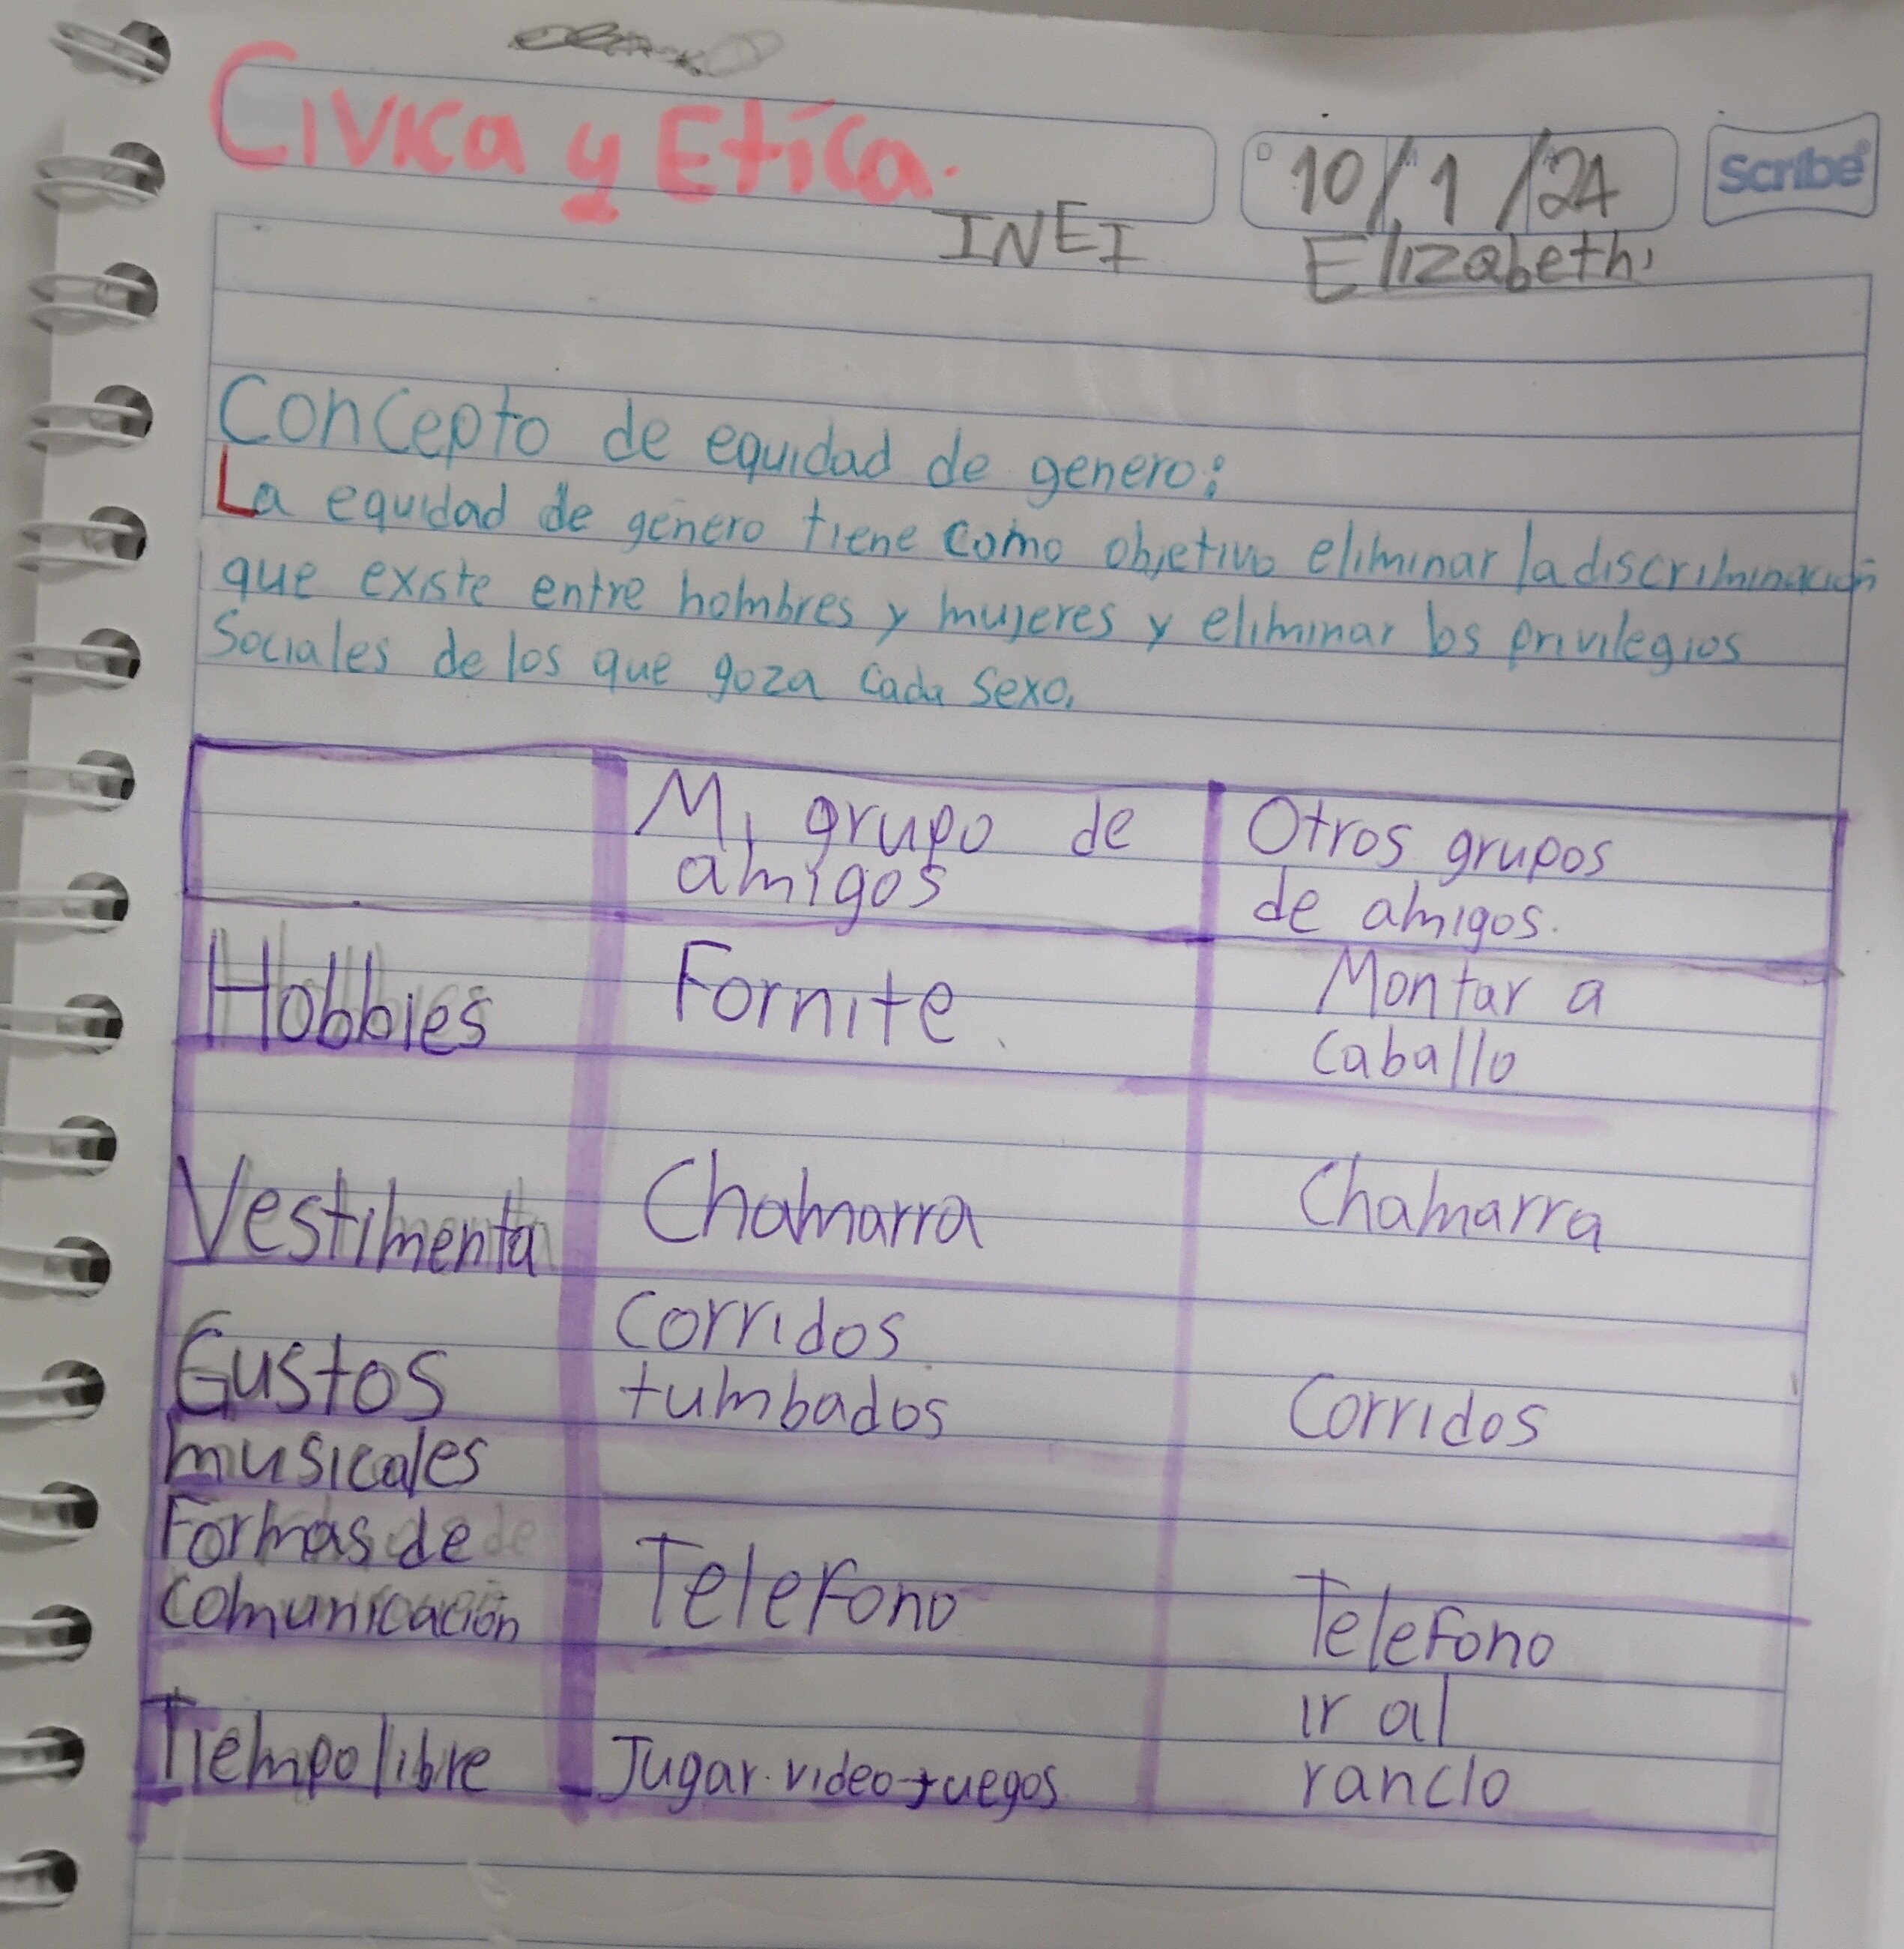 Civica y Etica.
10/1/24
Scribe
INEI
Elizabeth.
Concepto de equidad de genero:
La equidad de genero tiene como objetivo eliminar la discriminación
que existe entre hombres y mujeres y eliminar los privilegios
Sociales de los que goza cada sexo.
Mi grupo de
amigos
Otros grupos
de amigos.
Hobbies
Fornite
Montar a
caballo
Vestimenta
Chamarra
Chamarra
Gustos
musicales
Corridos
tumbados
Corridos
Formas de
comunicación
Telefono
Telefono
Tiempo libre
Jugar videojuegos
ir al
ranclo